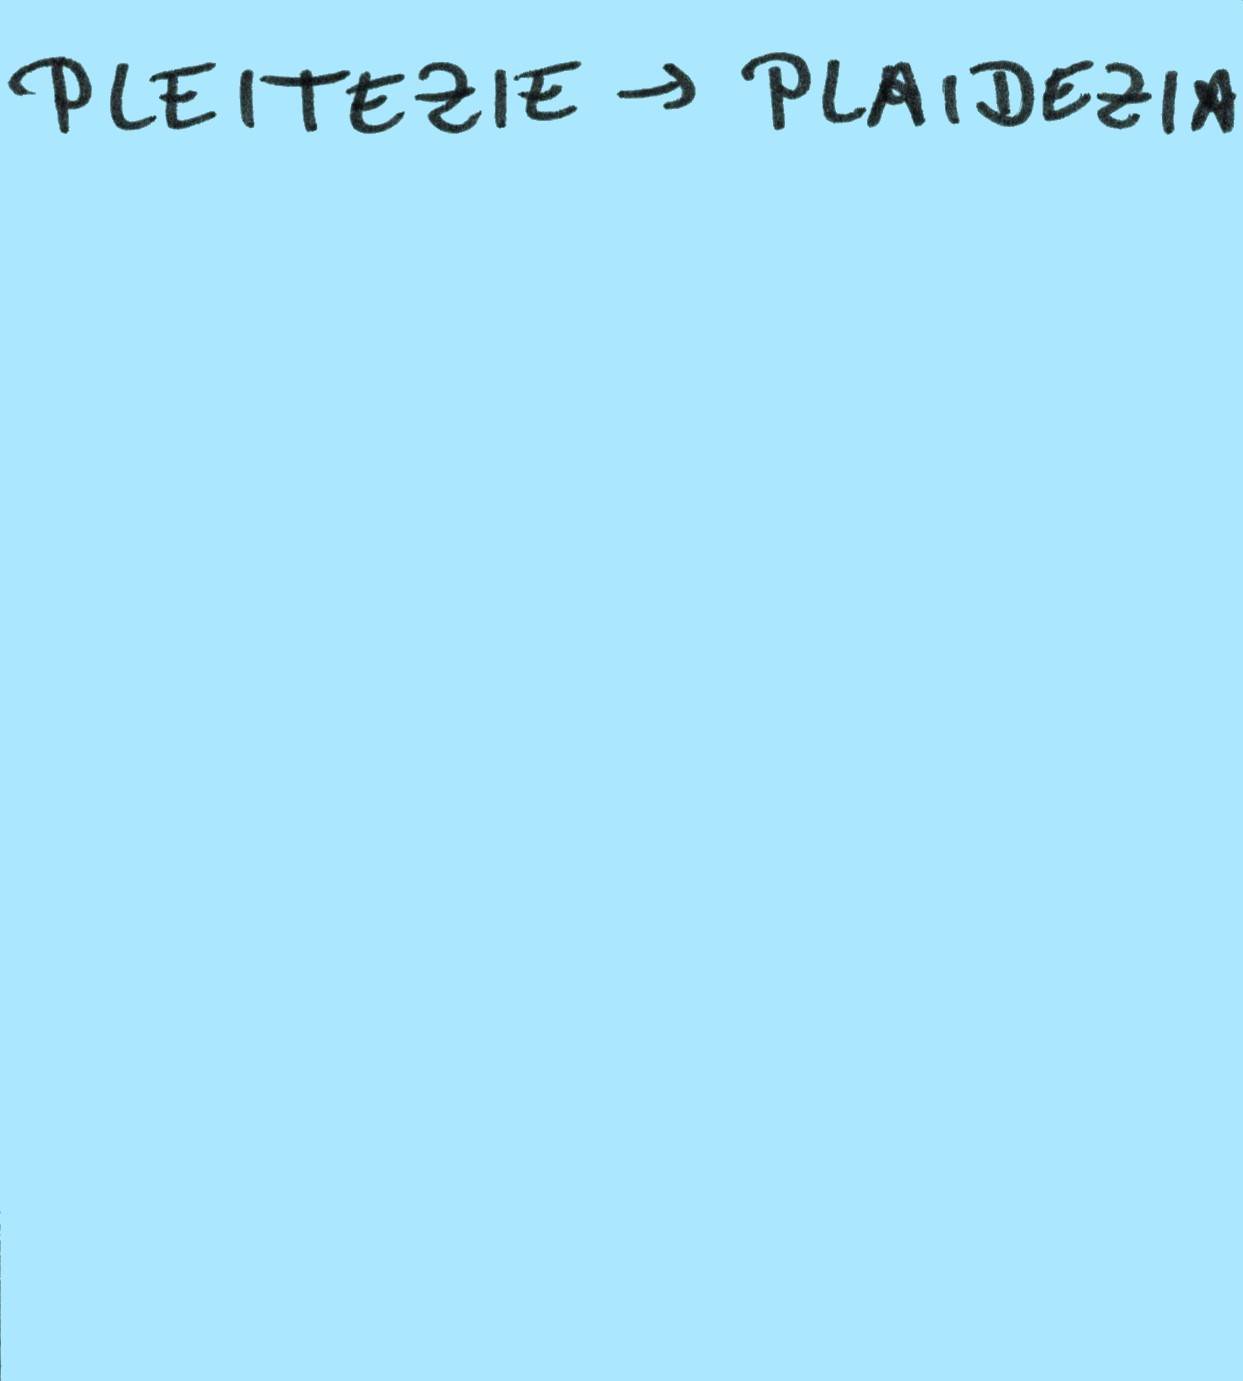 PLEITEZIE → PLAIDEZIA